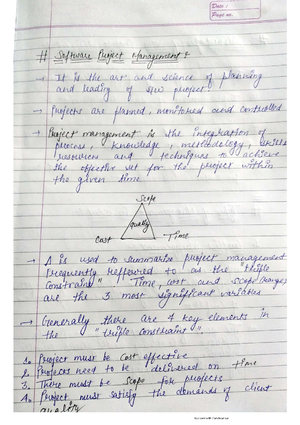 Date :
Page no.
# Software Project Management :
→ It is the art and science of planning
and leading of s/w project.
→ Projects are planned, monitored and controlled
→ Project management is the integration of
process, knowledge, methodology, skills
resources and techniques to achieve
the objective set for the project within
the given time.
Scope
Quality
Cost Time
→ Δ is used to summarise project management
frequently reffered to as the "triple
constraint" Time, cost and scope
are the 3 most significant variables
→ Generally there are 4 key elements in
the "triple constraint".
1. Project must be cost effective
2. Projects need to be delivered on time
3. There must be scope for projects
4. Project must satisfy the demands of client
quality